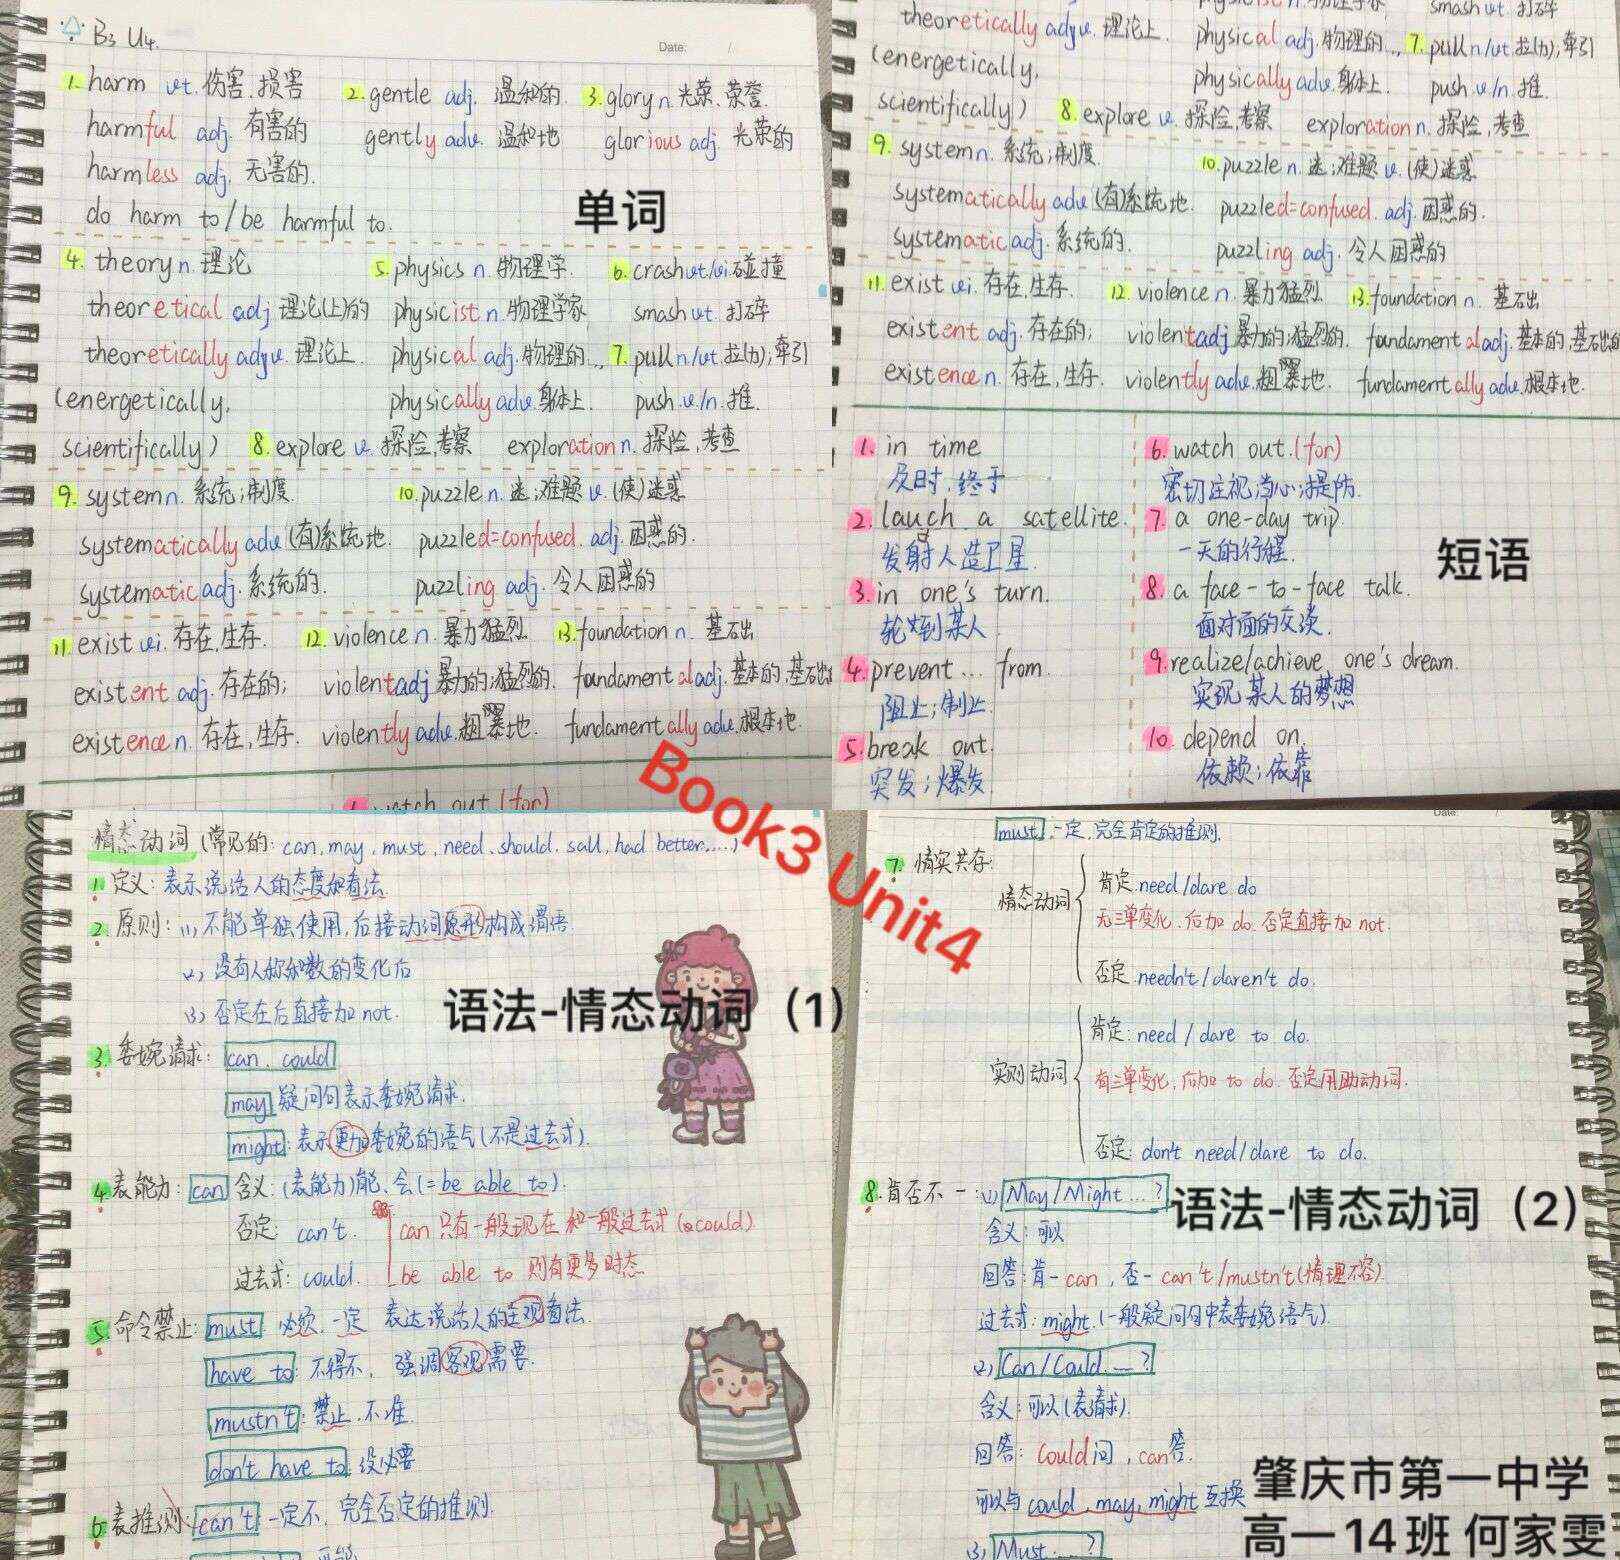 B3 U4.
Date: /
1. harm vt. 伤害.损害
2. gentle adj. 温和的.
3. glory n. 光荣.荣誉.
harmful adj. 有害的
gently adv. 温和地
glorious adj. 光荣的
harmless adj. 无害的.
do harm to/be harmful to.
单词
4. theory n. 理论
5. physics n. 物理学.
6. crash vt/vi. 碰撞
theoretical adj. 理论(上)的
physicist n. 物理学家
smash vt. 打碎
theoretically adv. 理论上.
physical adj. 物理的...
7. pull n/vt. 拉(力);牵引
(energetically,
physically adv. 身体上.
push. v/n. 推.
scientifically)
8. explore v. 探险,考察
exploration n. 探险,考查
9. system n. 系统;制度
10. puzzle n. 迷;难题 v. (使)迷惑
systematically adv (有)系统地.
puzzled=confused. adj. 困惑的.
systematic adj. 系统的.
puzzling adj. 令人困惑的
11. exist vi. 存在,生存.
12. violence n. 暴力猛烈
13. foundation n. 基础
existent adj. 存在的;
violent adj 暴力的;猛烈的.
foundamental adj. 基本的,基础的
existence n. 存在,生存.
violently adv. 粗暴地.
fundamentally adv. 根本地.
watch out (for)
physicist n. 物理学家
smash vt. 打碎
theoretically adv. 理论上.
physical adj. 物理的...
7. pull n/vt 拉(力),牵引
(energetically,
physically adv. 身体上.
push. v/n. 推.
scientifically)
8. explore v. 探险,考察
exploration n. 探险,考查
9. system n. 系统;制度.
10. puzzle n. 迷;难题 v. (使)迷惑
systematically adv (有)系统地.
puzzled=confused. adj. 困惑的.
systematic adj. 系统的.
puzzling adj. 令人困惑的
11. exist vi. 存在,生存.
12. violence n. 暴力猛烈
13. foundation n. 基础
existent adj. 存在的;
violent adj 暴力的;猛烈的.
foundamental adj. 基本的,基础的
existence n. 存在,生存.
violently adv. 粗暴地.
fundamentally adv. 根本地.
1. in time
及时.终于
2. lauch a satellite.
发射人造卫星
3. in one's turn.
轮到某人.
4. prevent... from
阻止;制止.
5. break out.
突发;爆发.
6. watch out.(for)
密切注视;当心;提防.
7. a one-day trip.
一天的行程.
8. a face-to-face talk.
面对面的交谈.
9. realize/achieve one's dream.
实现某人的梦想
10. depend on.
依赖;依靠
短语
Book3 Unit4
情态动词 (常见的: can, may, must, need, should, sall, had better,....)
1. 定义: 表示说话人的态度和看法.
2. 原则: (1) 不能单独使用,后接动词原形构成谓语.
(2) 没有人称和数的变化后
(3) 否定在后直接加not.
语法-情态动词（1）
3. 委婉请求: can. could
may 疑问句表示委婉请求.
might: 表示更加委婉的语气(不是过去式).
4. 表能力: can 含义: (表能力)能、会(= be able to).
否定: can't.
can 只有一般现在和一般过去式 (could)
过去式: could.
be able to 则有更多时态
5. 命令禁止: must 必须.一定 表达说话人的主观看法.
have to: 不得不, 强调客观需要.
mustn't: 禁止.不准.
don't have to: 没必要
6. 表推测: can't 一定不, 完全否定的推测.
Date:
must, 一定, 完全肯定的推测.
7. 情实共存:
情态动词
肯定.need/dare do
无三单变化, 后加 do. 否定直接加 not.
否定. needn't/daren't do.
实则动词
肯定: need / dare to do.
有三单变化, 后加 to do. 否定用助动词.
否定: don't need/dare to do.
8. 肯否不一: (1) May/Might...?
语法-情态动词（2）
含义: 可以
回答: 肯-can, 否-can't/mustn't(情理不容)
过去式: might. (一般疑问句中表委婉语气).
(2) Can/Could...?
含义: 可以(表请求).
回答: Could问, can答.
可以与 could, may, might 互换
(3) Must...?
肇庆市第一中学
高一14班 何家雯